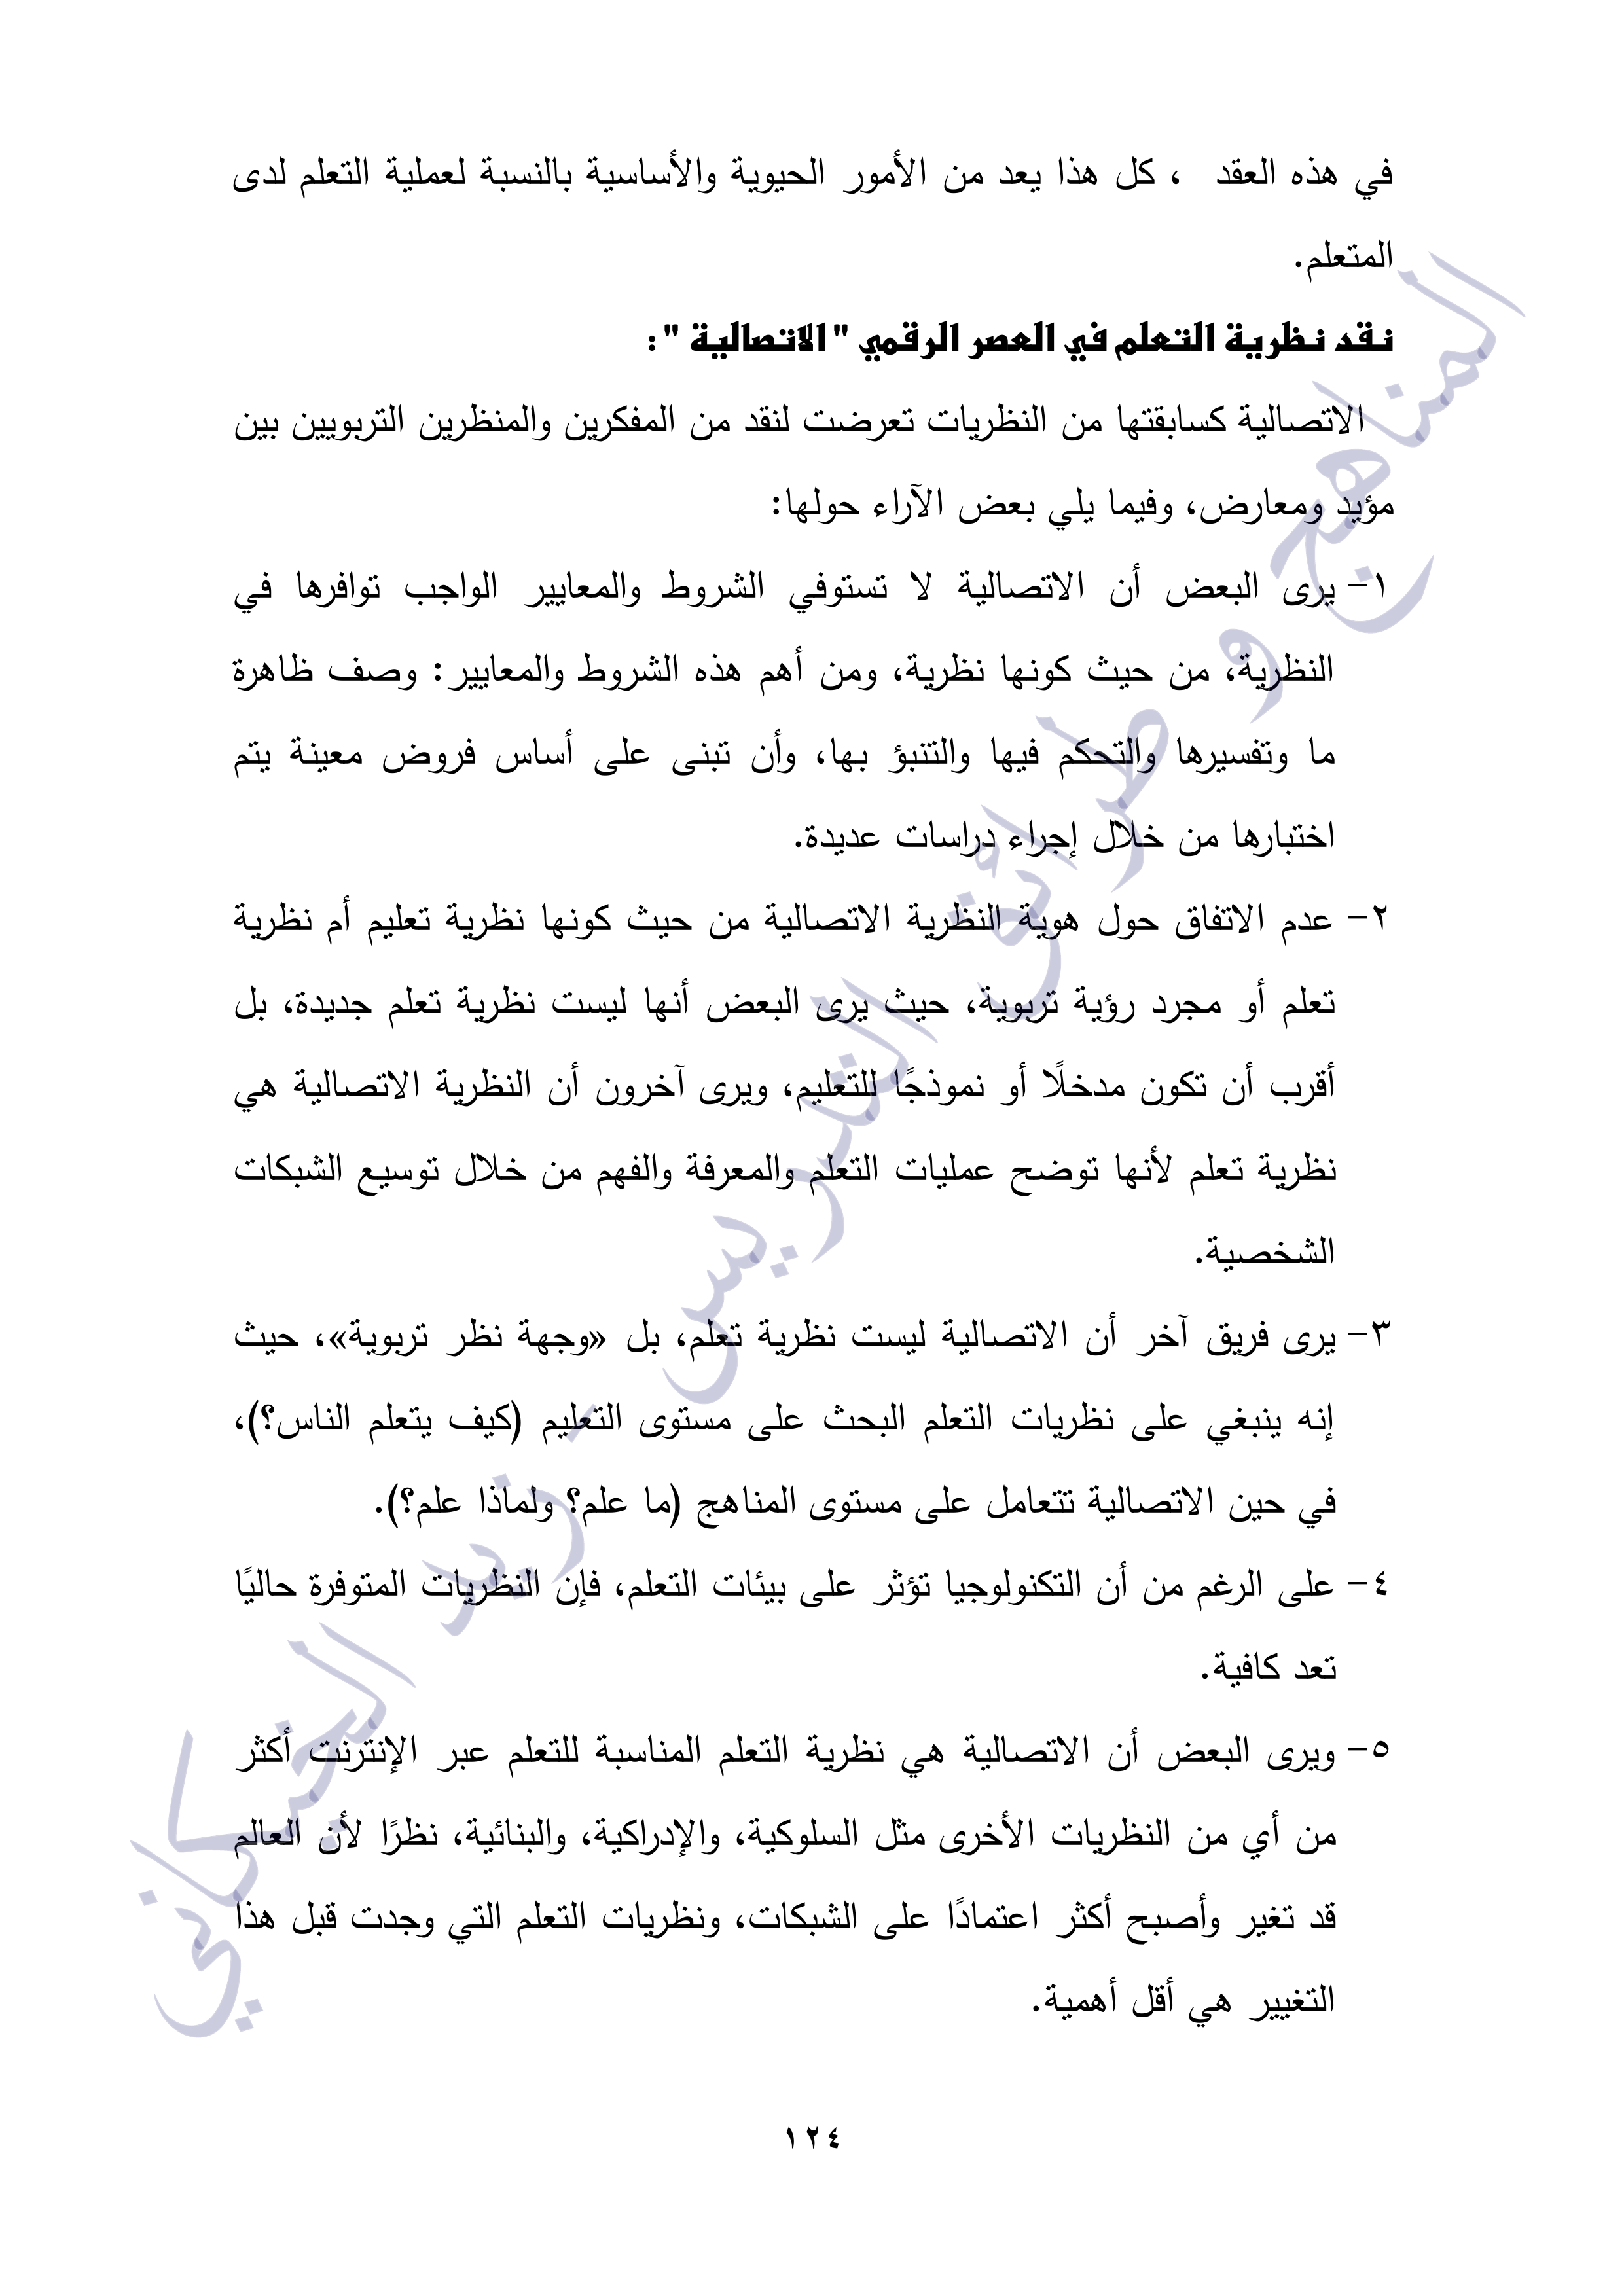 في هذه العقد ، كل هذا يعد من الأمور الحيوية والأساسية بالنسبة لعملية التعلم لدى
المتعلم.
نقد نظرية التعلم في العصر الرقمي " الاتصالية " :
الاتصالية كسابقتها من النظريات تعرضت لنقد من المفكرين والمنظرين التربويين بين
مؤيد ومعارض، وفيما يلي بعض الآراء حولها:
١- يرى البعض أن الاتصالية لا تستوفي الشروط والمعايير الواجب توافرها في
النظرية، من حيث كونها نظرية، ومن أهم هذه الشروط والمعايير: وصف ظاهرة
ما وتفسيرها والتحكم فيها والتنبؤ بها، وأن تبنى على أساس فروض معينة يتم
اختبارها من خلال إجراء دراسات عديدة.
٢- عدم الاتفاق حول هوية النظرية الاتصالية من حيث كونها نظرية تعليم أم نظرية
تعلم أو مجرد رؤية تربوية، حيث يرى البعض أنها ليست نظرية تعلم جديدة، بل
أقرب أن تكون مدخلًا أو نموذجًا للتعليم، ويرى آخرون أن النظرية الاتصالية هي
نظرية تعلم لأنها توضح عمليات التعلم والمعرفة والفهم من خلال توسيع الشبكات
الشخصية.
٣- يرى فريق آخر أن الاتصالية ليست نظرية تعلم، بل «وجهة نظر تربوية»، حيث
إنه ينبغي على نظريات التعلم البحث على مستوى التعليم (كيف يتعلم الناس؟)،
في حين الاتصالية تتعامل على مستوى المناهج (ما علم؟ ولماذا علم؟).
٤- على الرغم من أن التكنولوجيا تؤثر على بيئات التعلم، فإن النظريات المتوفرة حاليًا
تعد كافية.
٥- ويرى البعض أن الاتصالية هي نظرية التعلم المناسبة للتعلم عبر الإنترنت أكثر
من أي من النظريات الأخرى مثل السلوكية، والإدراكية، والبنائية، نظرًا لأن العالم
قد تغير وأصبح أكثر اعتمادًا على الشبكات، ونظريات التعلم التي وجدت قبل هذا
التغيير هي أقل أهمية.
١٢٤
المناهج و طرائق التدريس - زيد الخيكاني